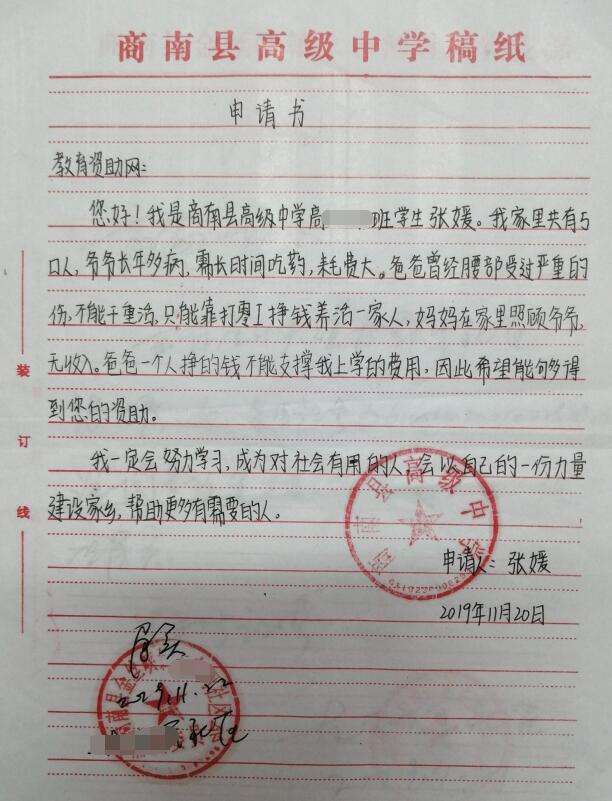 商南县高级中学稿纸
申请书
教育资助网:
您好!我是商南县高级中学高 班学生张媛。我家里共有5
口人,爷爷长年多病,需长时间吃药,耗费大。爸爸曾经腰部受过严重的
伤,不能干重活,只能靠打零工挣钱养活一家人,妈妈在家里照顾爷爷,
无收入。爸爸一个人挣的钱不能支撑我上学的费用,因此希望能够得
到您的资助。
我一定会努力学习,成为对社会有用的人,会以自己的一份力量
建设家乡,帮助更多有需要的人。
装
订
线
商南县高级中学
申请人:张媛
2019年11月20日
属实
2019.11.22